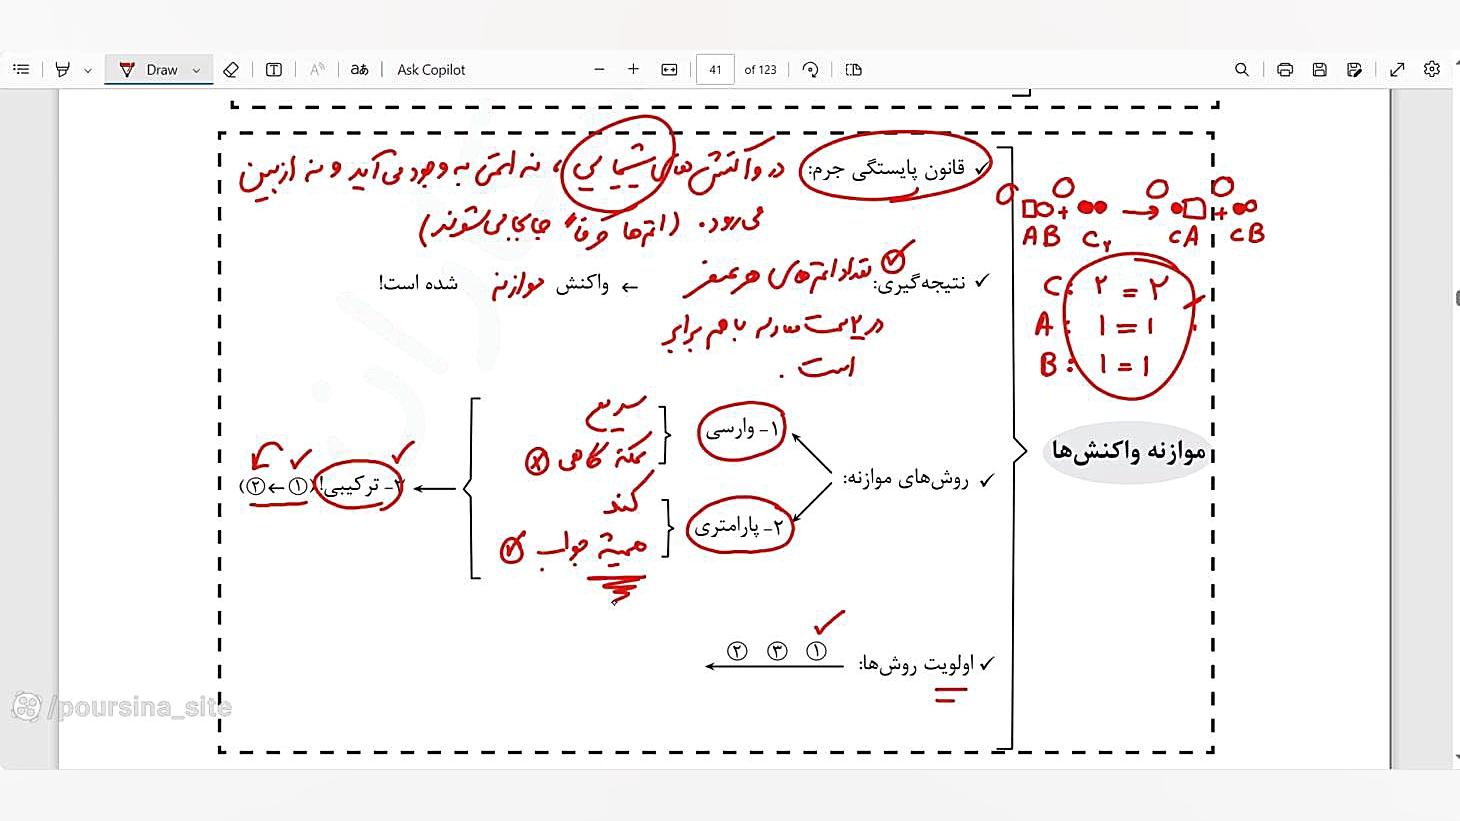 Draw
Ask Copilot
41 of 123
✓ قانون پایستگی جرم: در واکنش های شیمیایی، نه اتمی به وجود می آید و نه از بین
می رود. (اتم ها صرفاً جابجا می شوند)
✓ نتیجه‌گیری: تعداد اتم های هر عنصر ← واکنش موازنه شده است!
در ۲ سمت معادله با هم برابر
است.
AB + C۲ → CA + CB
C: ۲ = ۲
A: ۱ = ۱
B: ۱ = ۱
موازنه واکنش‌ها
✓ روش‌های موازنه:
۱- وارسی
سریع
همه گاهی
۲- پارامتری
کند
همیشه جواب
۳- ترکیبی! (① ← ②)
✓ اولویت روش‌ها: ① ③ ②
/poursina_site